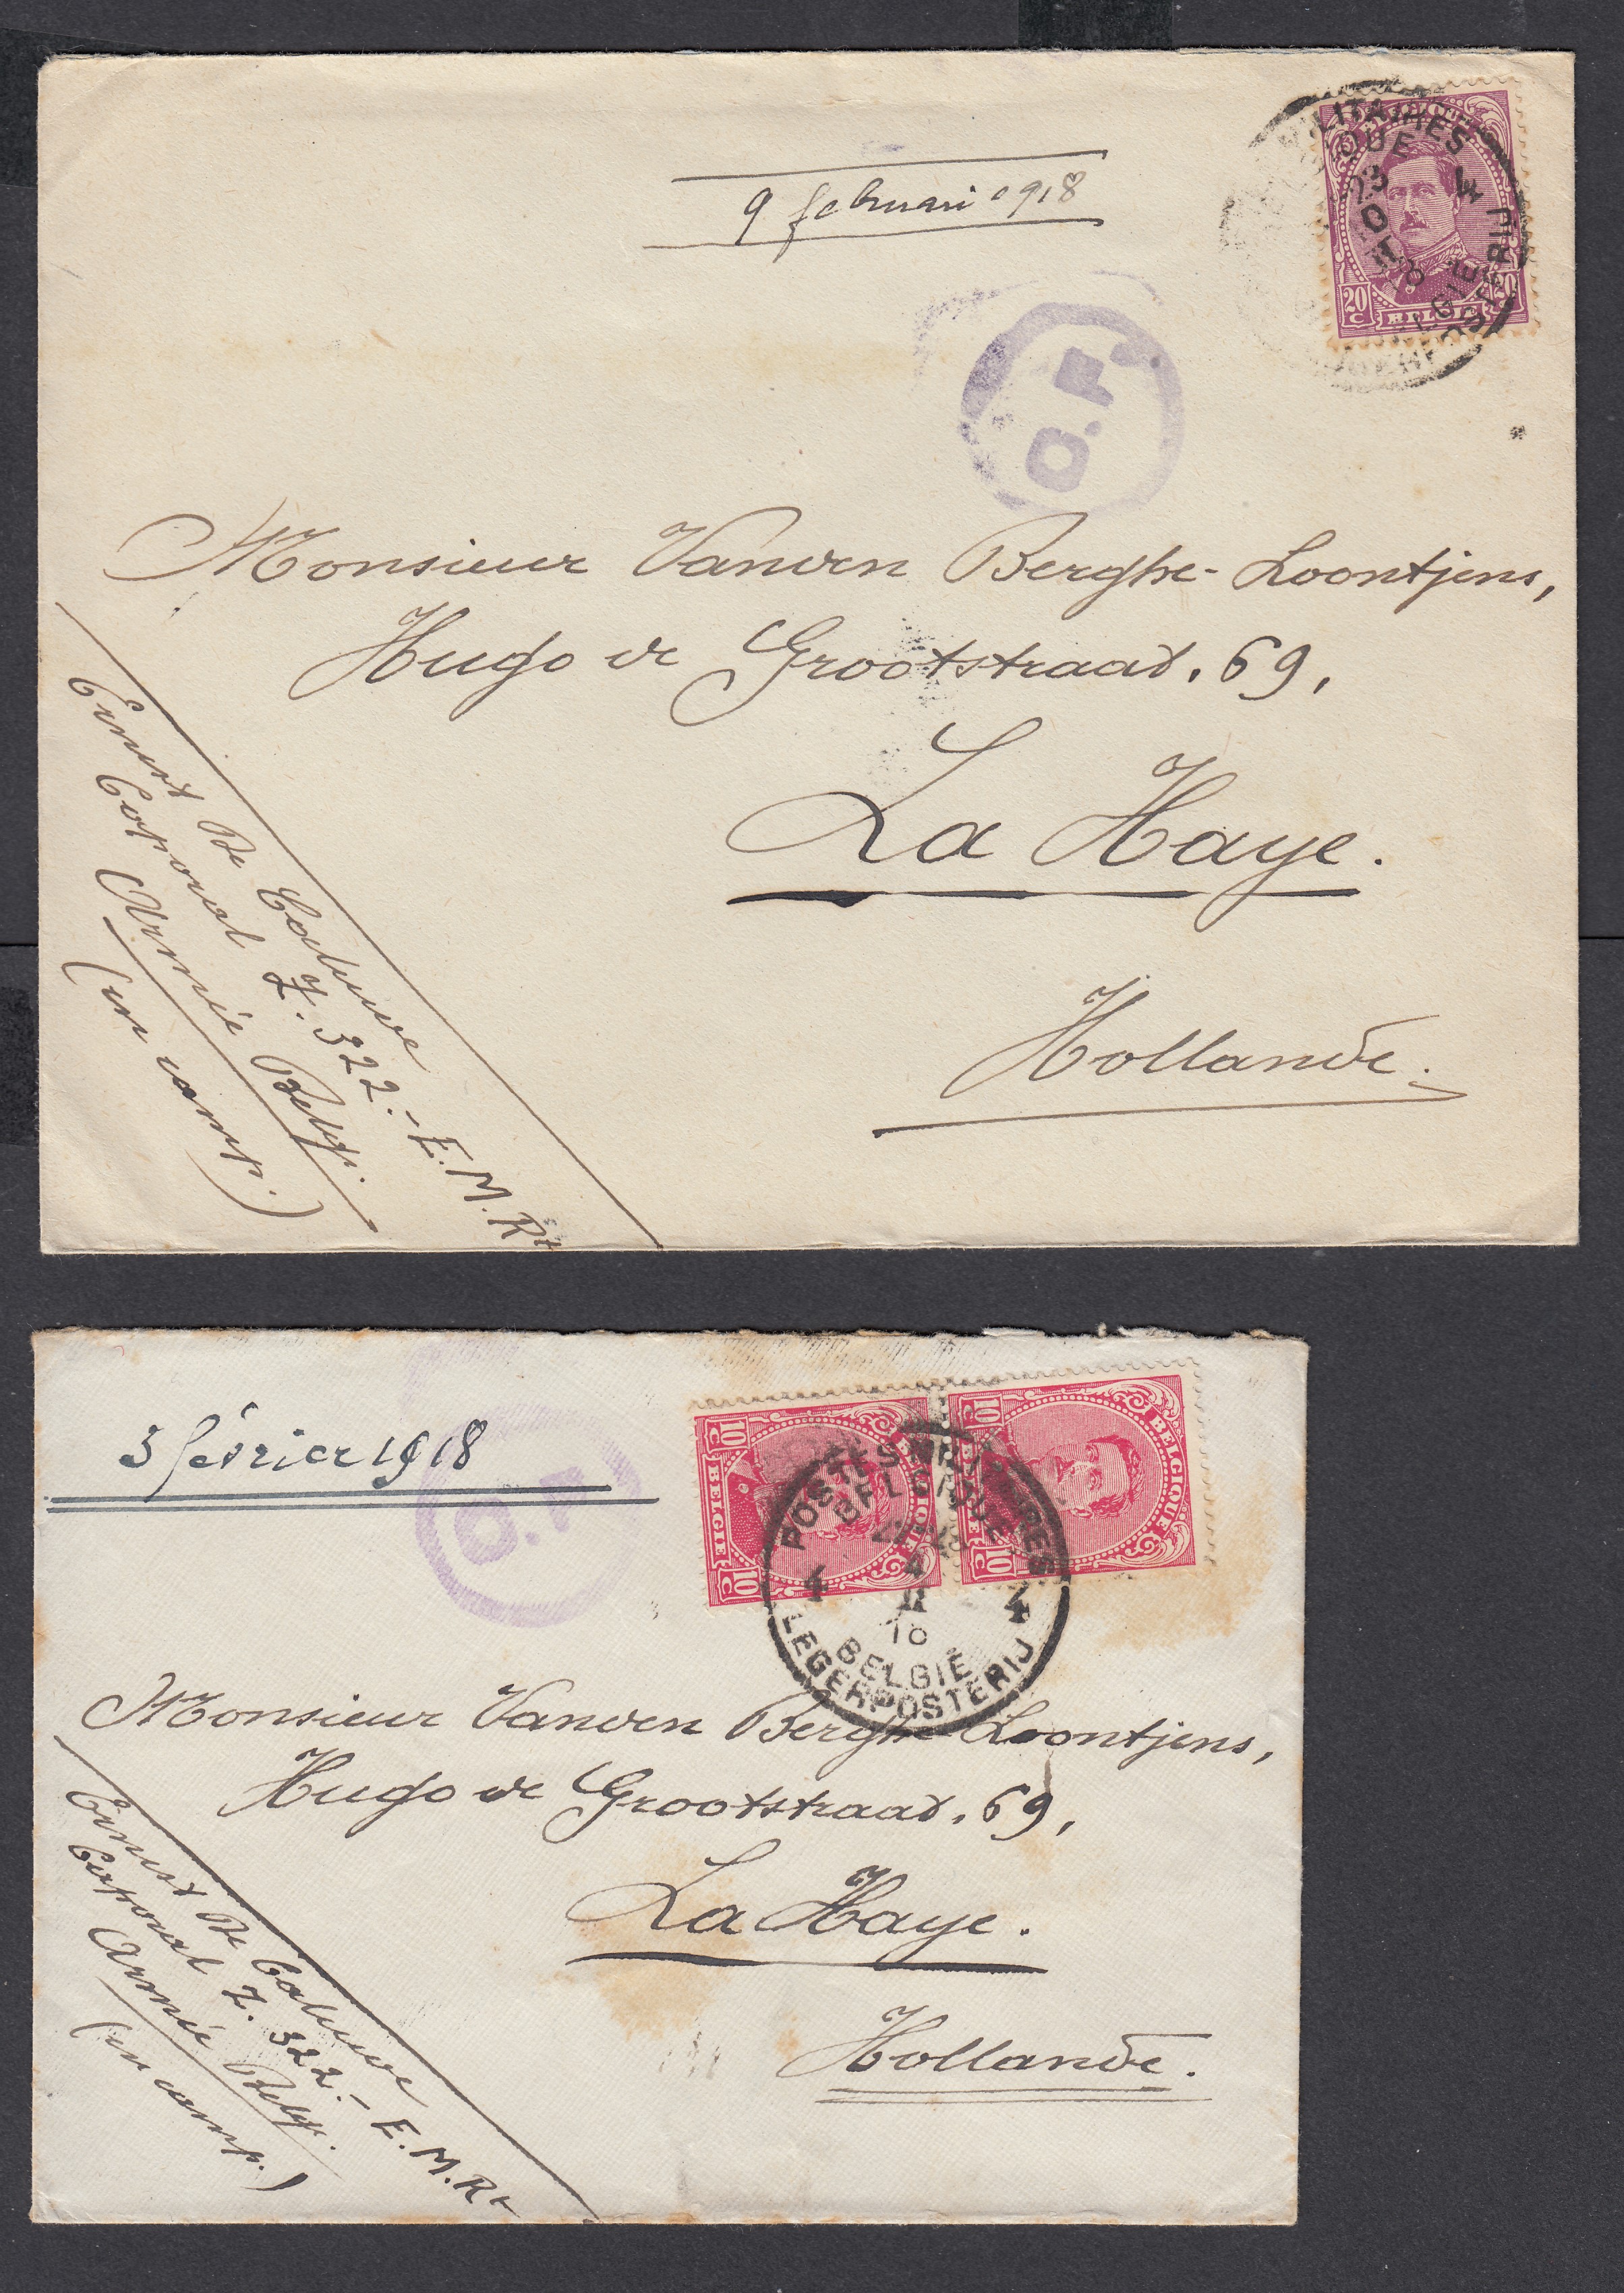 9 februari 1918
LITAIRES
QUE
4
10
II
18
20 C BELGIE 20 C
O.F.
Monsieur Vanden Berghe-Loontjens,
Hugo de Grootstraat, 69,
La Haye.
Hollande.
Ernest De Caluwe
Caporal Z. 322.- E.M.Rt
Armée Belge.
(en camp.)
3 février 1918
O.F.
10 C BELGIE 10 C
BELGIQUE
10 C BELGIE 10 C
POSTES MILITAIRES
BELGIQUE
4 4 4
II
18
BELGIË
LEGERPOSTERIJ
Monsieur Vanden Berghe-Loontjens,
Hugo de Grootstraat, 69,
La Haye.
Hollande.
Ernest De Caluwe
Caporal Z. 322.- E.M.Rt
Armée Belge.
(en camp.)